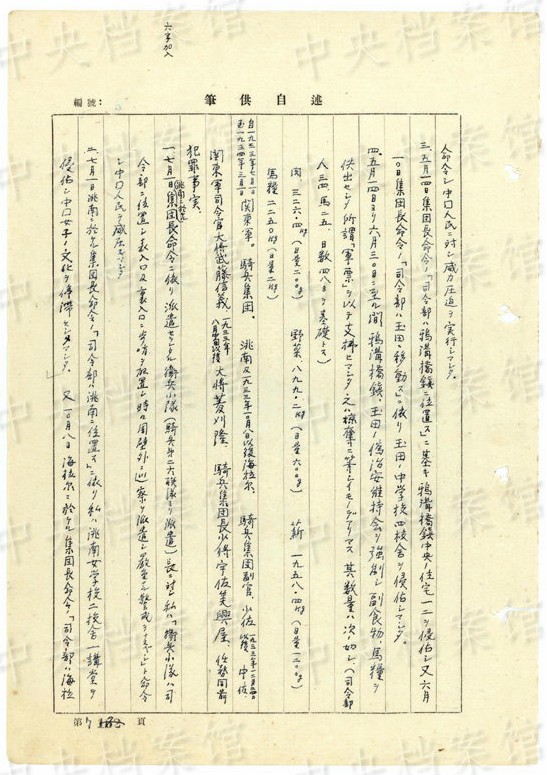 六字加入
編號：
述自供筆
命令シ中国人民ニ対シ威力圧迫ヲ実行シマシタ。
三、五月一四日集団長命令ノ「司令部ハ鴉溝橋鎮ニ位置ス」ニ基キ鴉溝橋鎮中央ノ住宅一二ヲ侵佔シ又六月
一〇日集団長命令ノ「司令部ハ玉田ニ移動ス」ニ依リ玉田ノ中学校四校舎ヲ侵佔シマシタ。
四、五月一四日ヨリ六月三〇日ニ至ル間鴉溝橋鎮、玉田ノ偽治安維持会ヲ強制シ副食物、馬糧ヲ
供出セシメ所謂「軍票」ヲ以テ支払ヒマシタ之ハ掠奪ニ等シイモノデアリマス其数量ハ次ノ如シ（司令部
人三四、馬二五、日数四八ヲ基礎トス）
肉、三二六・四（日量二〇〇）　野菜、八九九・二（日量六〇〇）　薪　一九五八・四（日量一二〇〇）
馬糧二二五〇（日量二）
自一九三三年七月一日
至一九三四年三月
関東軍。騎兵集団。洮南及一九三三年一〇月八日以後海拉爾、騎兵集団副官、少佐、
以後　中佐、
関東軍司令官大将武藤信義、一九三三年
八月以後大将菱刈隆、騎兵集団長少将宇佐美興屋、任務同前
犯罪事実、
一、七月一日集団長命令ニ依リ派遣セラレタル衛兵小隊（騎兵第二六聯隊ヨリ派遣）長ニ対シ私ハ「衛兵小隊ハ司
令部ニ位置シ表入口及裏入口ニ歩哨ヲ放置シ時々周壁外ニ巡察ヲ派遣シ厳重ニ警戒ヲナスベシ」ト命令
シ中国人民ヲ威圧シマシタ
二、七月一日洮南ニ於ケル集団長命令ノ「司令部ハ洮南ニ位置ス」ニ依リ私ハ洮南女学校二校舎一講堂ヲ
侵佔シ中国女子ノ文化ヲ停滞セシメマシタ。又一〇月八日海拉爾ニ於ケル集団長命令ノ「司令部ハ海拉
第 7 頁
中央档案馆